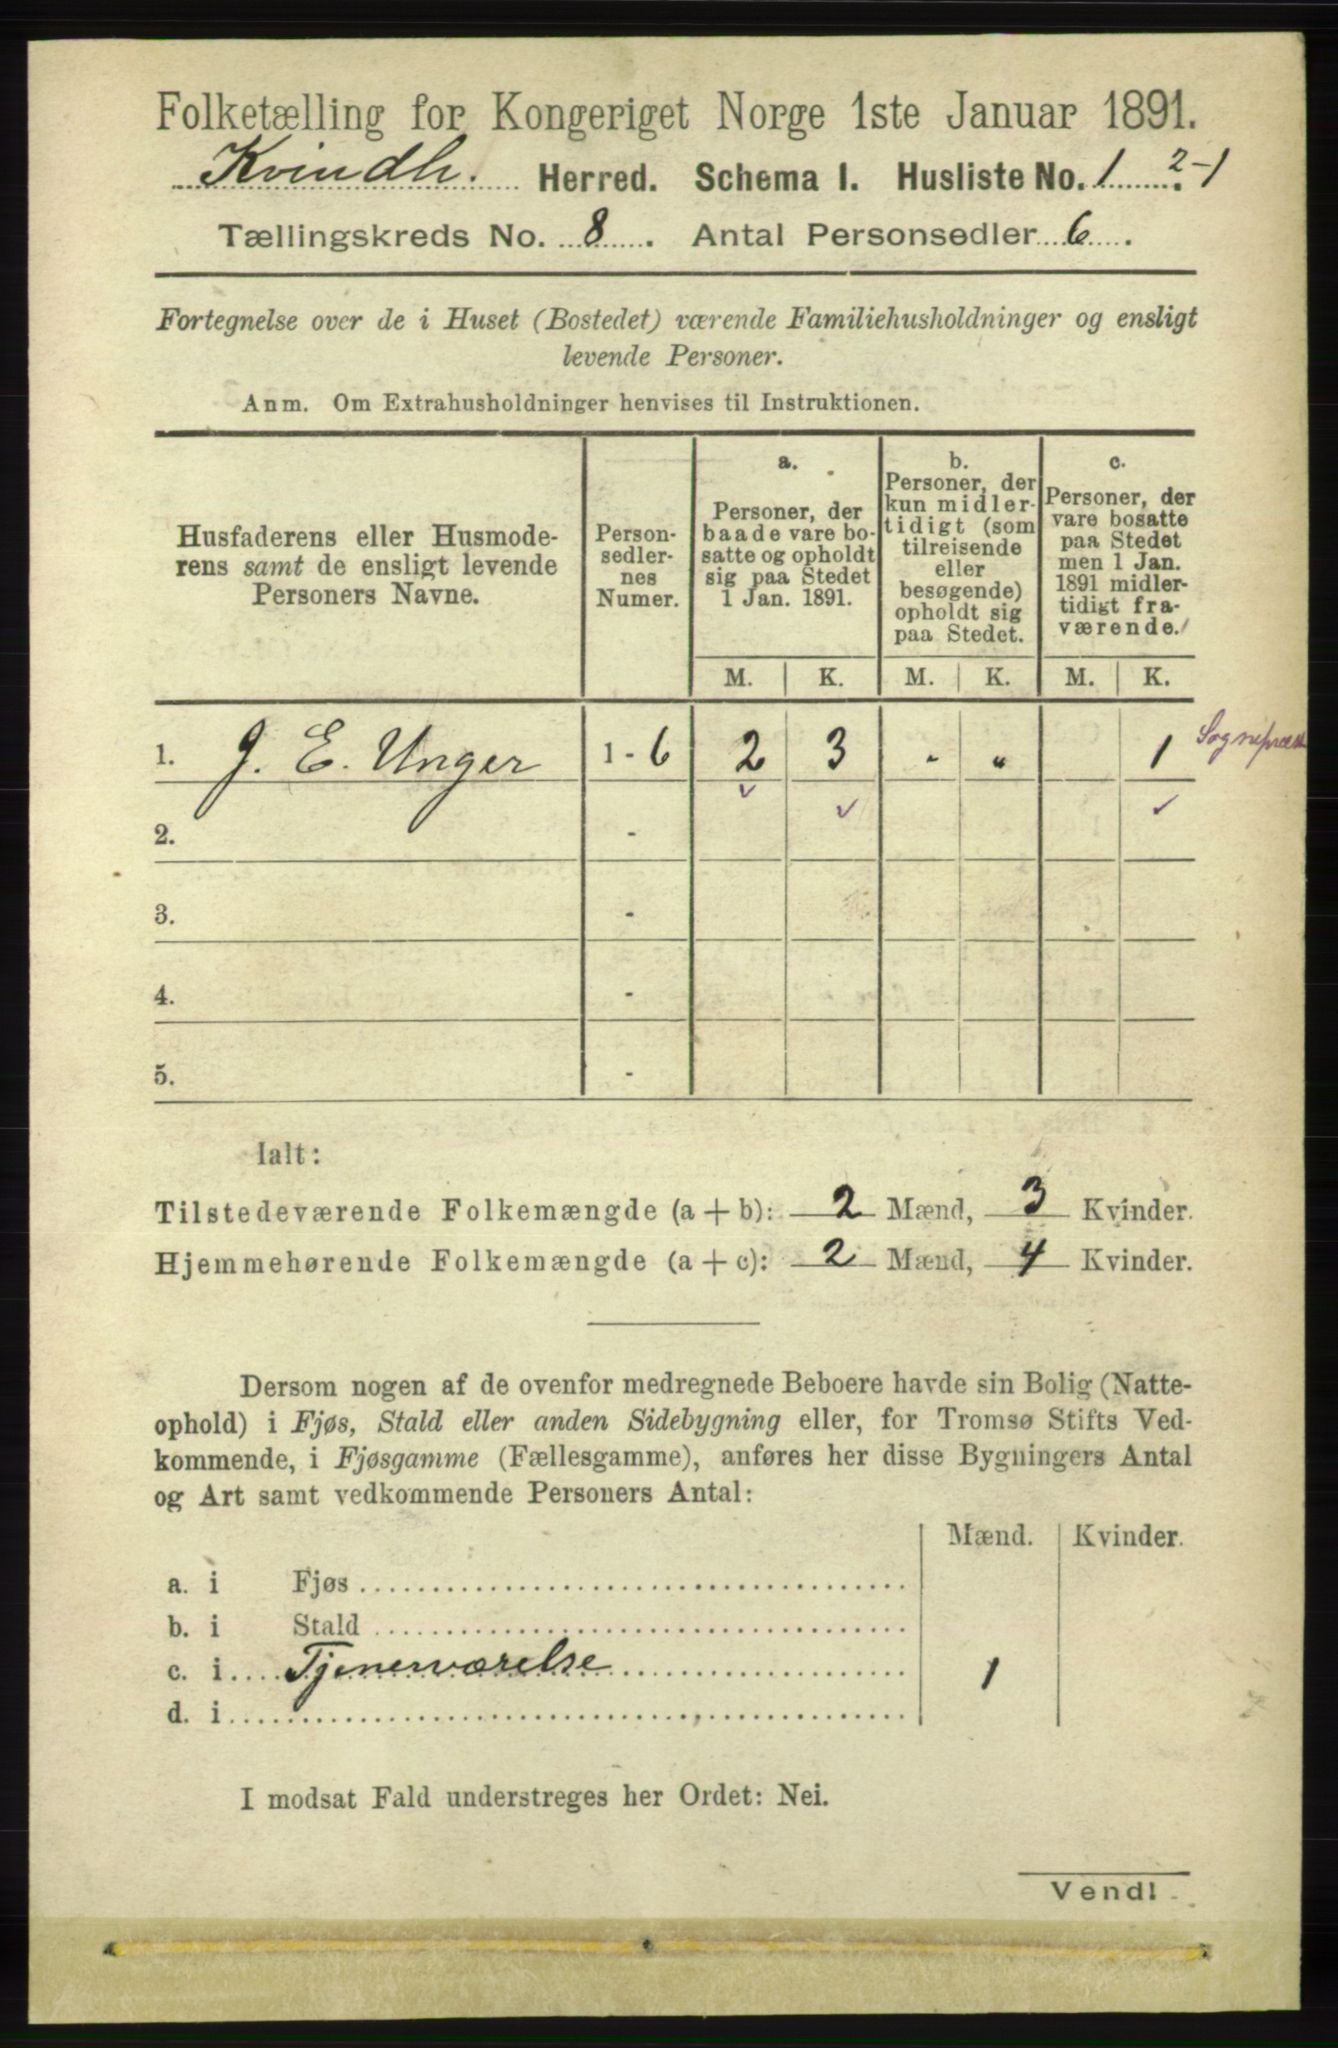 Folketælling for Kongeriget Norge 1ste Januar 1891.
Kvindh. Herred. Schema I. Husliste No. 1 2-1
Tællingskreds No. 8. Antal Personsedler 6.
Fortegnelse over de i Huset (Bostedet) værende Familiehusholdninger og ensligt
levende Personer.
Anm. Om Extrahusholdninger henvises til Instruktionen.
Husfaderens eller Husmode-
rens samt de ensligt levende
Personers Navne.
Person-
sedler-
nes
Numer.
a.
Personer, der
baade vare bo-
satte og opholdt
sig paa Stedet
1 Jan. 1891.
b.
Personer, der
kun midler-
tidigt (som
tilreisende
eller
besøgende)
opholdt sig
paa Stedet.
c.
Personer, der
vare bosatte
paa Stedet
men 1 Jan.
1891 midler-
tidigt fra-
værende.
M. K. M. K. M. K.
1. J. E. Unger 1 - 6 2 3 - " 1 Sognepræst
2. -
3. -
4. -
5. -
Ialt:
Tilstedeværende Folkemængde (a + b): 2 Mænd, 3 Kvinder.
Hjemmehørende Folkemængde (a + c): 2 Mænd, 4 Kvinder.
Dersom nogen af de ovenfor medregnede Beboere havde sin Bolig (Natte-
ophold) i Fjøs, Stald eller anden Sidebygning eller, for Tromsø Stifts Ved-
kommende, i Fjøsgamme (Fællesgamme), anføres her disse Bygningers Antal
og Art samt vedkommende Personers Antal:
Mænd. Kvinder.
a. i Fjøs
b. i Stald
c. i Tjenerværelse 1
d. i
I modsat Fald understreges her Ordet: Nei.
Vend!